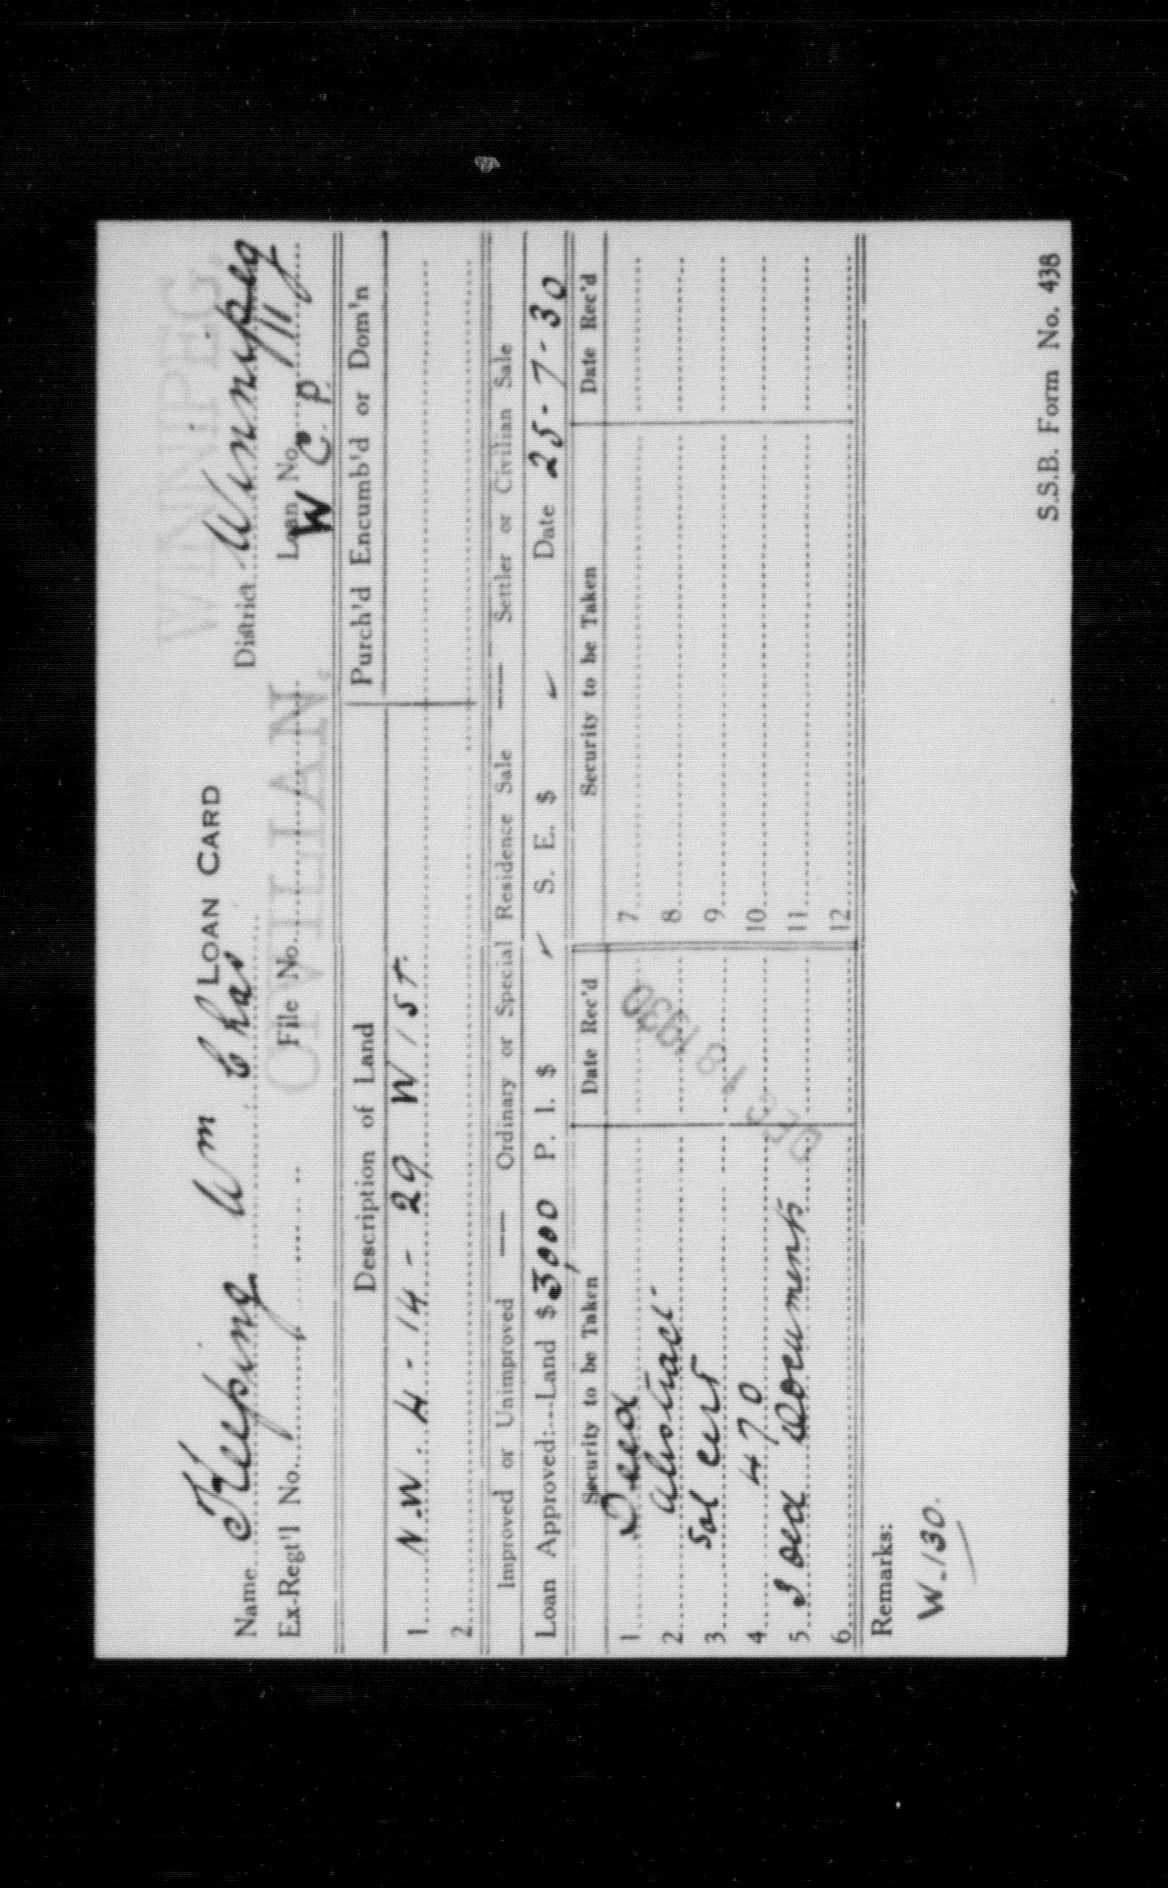 WINNIPEG.
LOAN CARD
Name Keeping Wm Chas District Winnipeg
CIVILIAN.
Ex-Regt'l No. File No. Loan No. 11
W C P
Description of Land Purch'd Encumb'd or Dom'n
1 N.W. 4 - 14 - 29 W 1st
2
Improved or Unimproved — Ordinary or Special Residence Sale — Settler or Civilian Sale
Loan Approved:—Land $ 3,000 P. I. $ ✓ S. E. $ ✓ Date 25-7-30
Security to be Taken Date Rec'd Security to be Taken Date Rec'd
1 Deed 7
2 Abstract 8
3 Sol cert 9
4 470 10
5 3 old Documents 11
6 12
DEC 18 1930
Remarks:
W-130.
S.S.B. Form No. 438